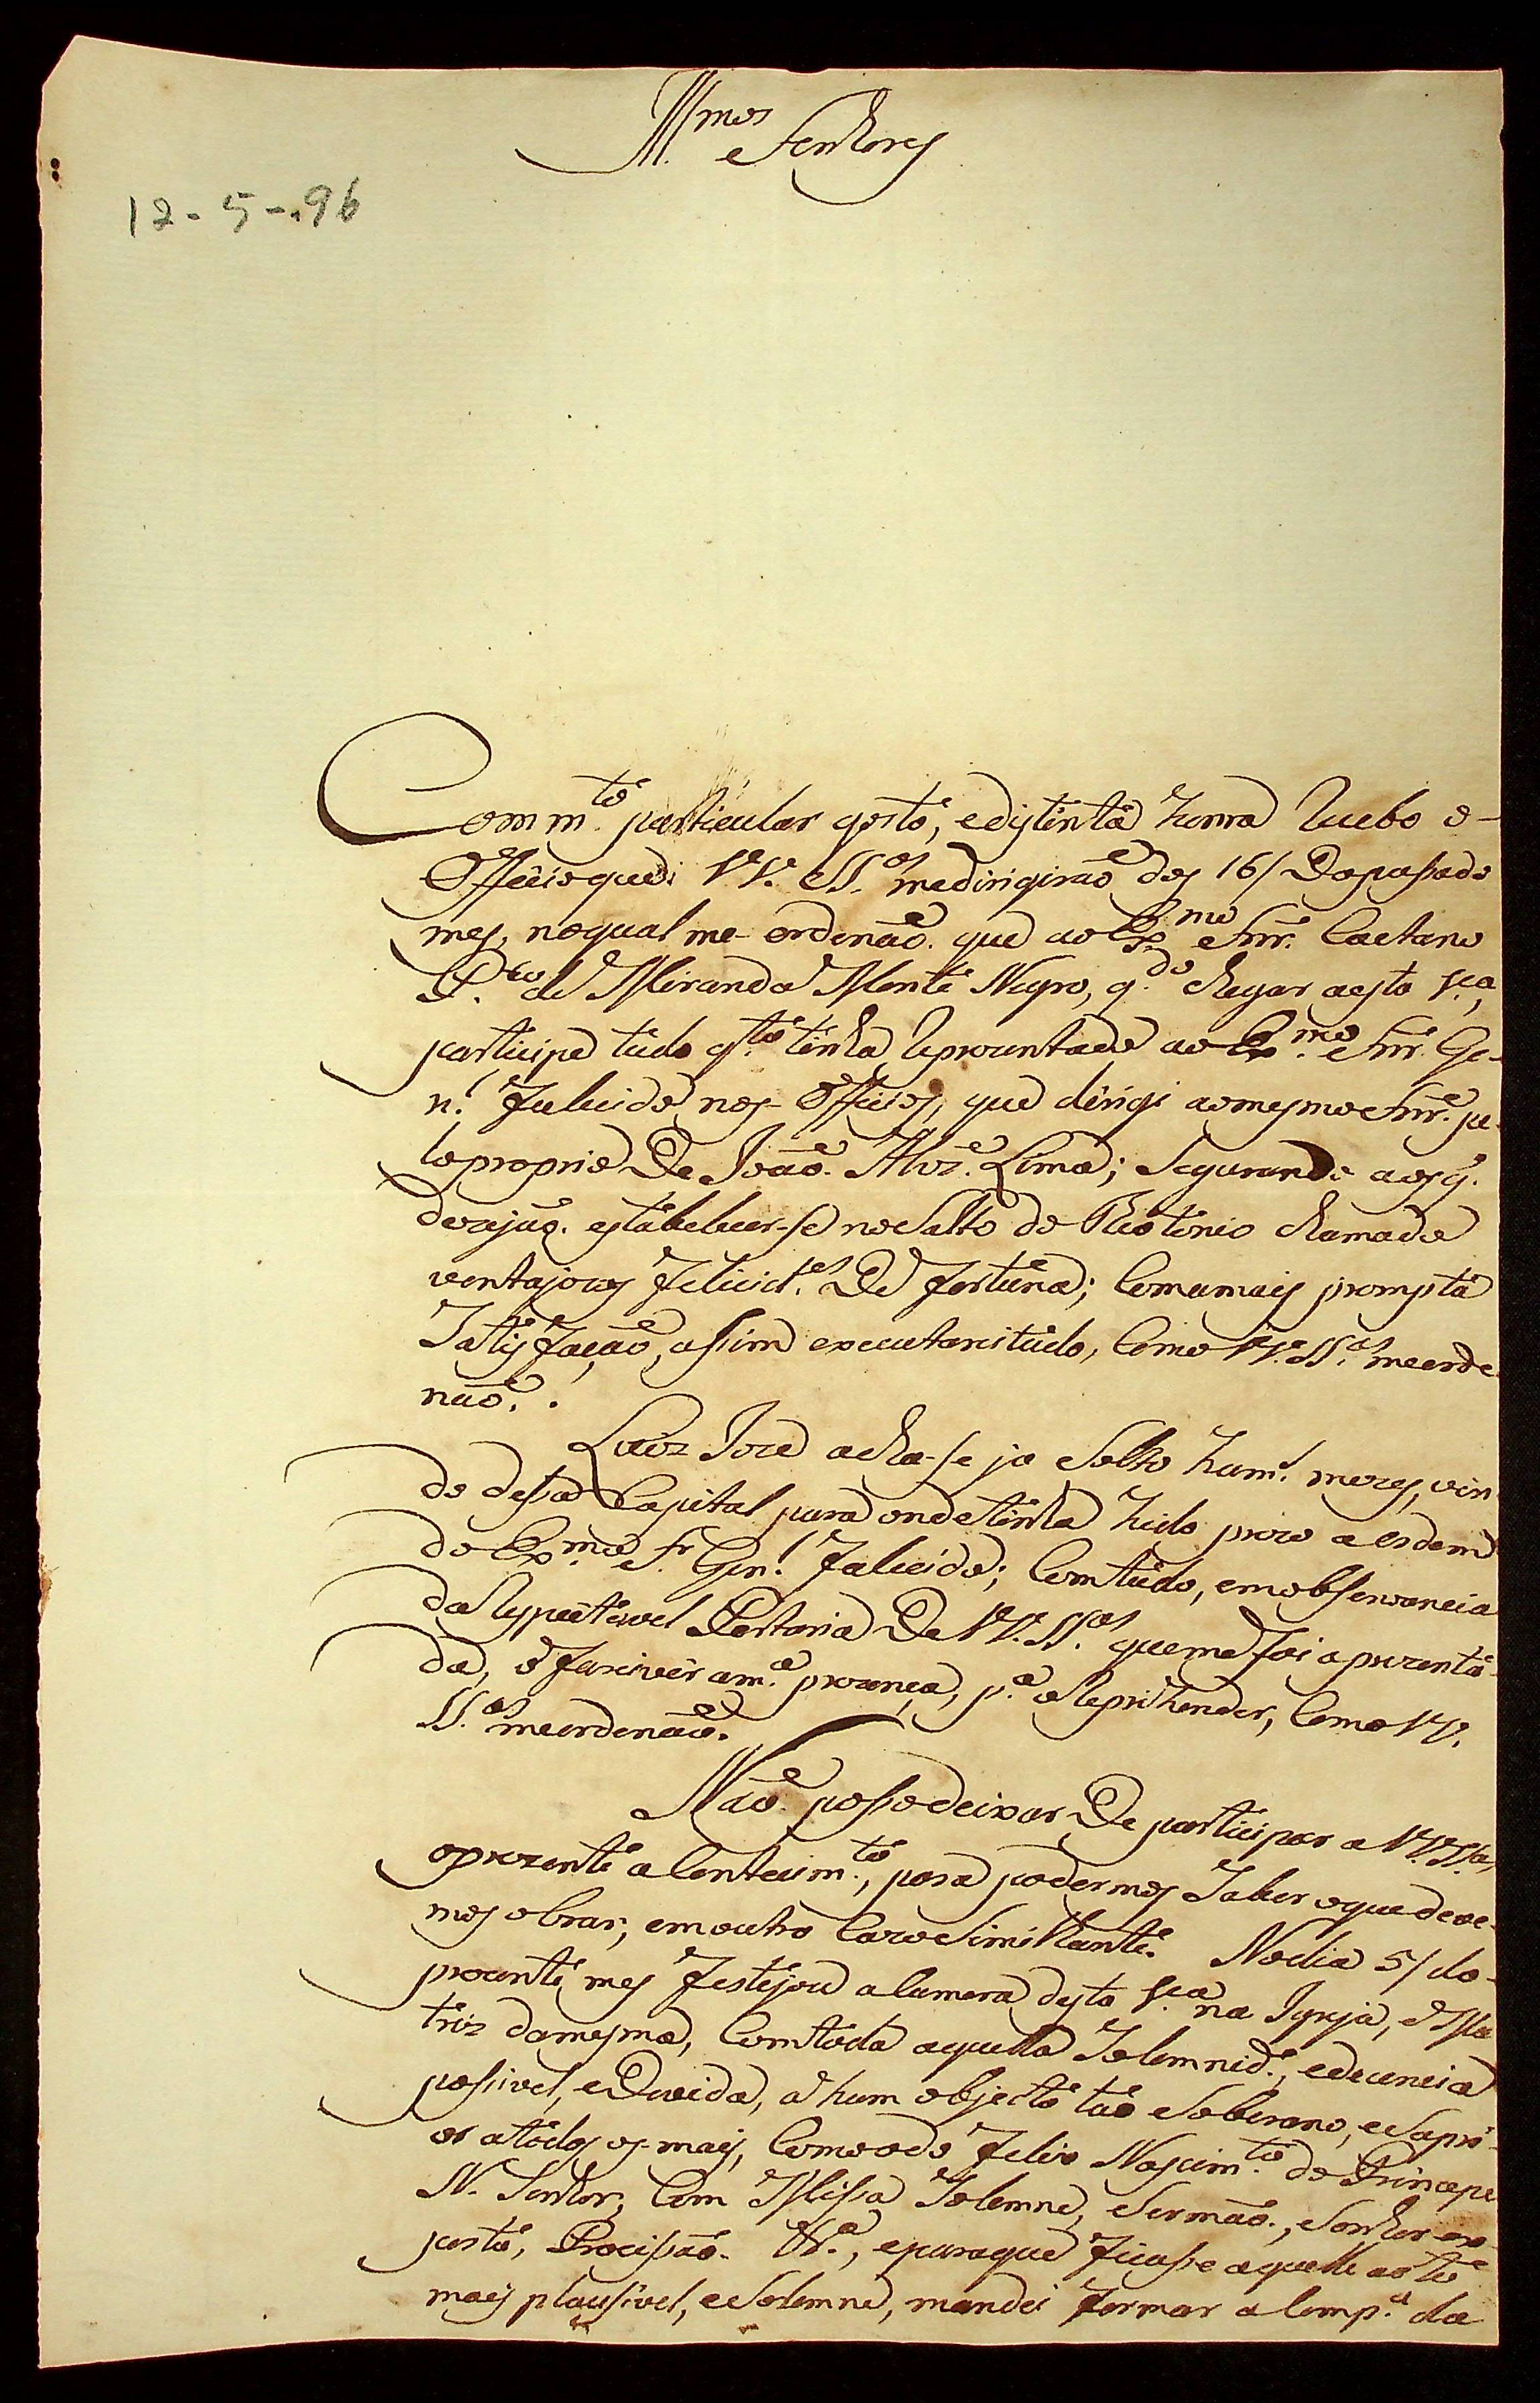 Ill.mos Senhores
12-5-.96
Com m.to particular gosto, e distinta honra recebo o
Officio que V.V. S.S.as me dirigiraõ dos 16/ Do passado
mes, no qual me ordenaõ. que ao Ex.mo Snr. Caetano
P.to de Miranda Monte Negro, q.do chegar a esta V.a,
participe tudo q.to tinha reprezentado ao Ex.mo Snr. Ge-
n.l falecido nos Officios, que dirigi ao mesmo Snr. pe-
lo proprio De Joaõ. Alvz. Lima; segurando aos q.
dezejaõ. estabelecer-se no Salto do Rio chamado
ventajozas felicid.es De fortuna; com a mais prompta
satisfaçaõ, assim executarei tudo, como V.V. S.S.as me orde
naõ. .
Luiz Joze acha-se ja solto hum. mezes, vin
do dessa Capital para onde tinha hido prezo a ordem
do Ex.mo Sr. Gen.l falecido; com tudo, em observancia
da respeitavel Portaria De V.V. S.S.as que me foi aprezenta-
da, o farei vir a m.a prezença, p.a o reprihender, como V.V.
S.S.as me ordenaõ.
Naõ. posso deixar De participar a V.V. S.S.as
o prezente a contecim.to, para podermos saber o que deve-
mos obrar, em outro cazo Similhante. No dia 5/ do-
prezente mes festejou a Camera desta V.a na Igreja, Ma
triz da mesma, com toda aquella Solemnid.e, e decencia
possivel, e Devida, a hum objecto taõ Soberano, e Supri-
or a todos os mais, como o do felix Nascim.to do Princepe
N. Senhor, com Missa Solemne, Sermaõ., Senhor ex-
posto, Procissaõ. &.a, e para que ficasse aquelle acto
mais plausivel, e Solemne, mandei formar a Comp.a da